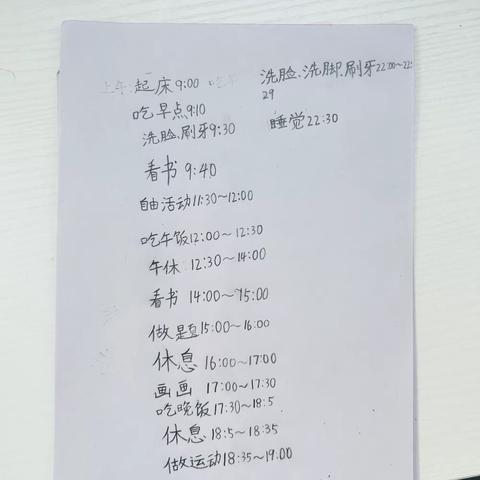 上午:起床9:00
吃早点9:10
洗脸、刷牙9:30
看书 9:40
自由活动11:30~12:00
吃午饭12:00~12:30
午休 12:30~14:00
看书 14:00~15:00
做题15:00~16:00
休息 16:00~17:00
画画 17:00~17:30
吃晚饭17:30~18:5
休息 18:5~18:35
做运动18:35~19:00
洗脸、洗脚、刷牙22:00~22:
29
睡觉22:30